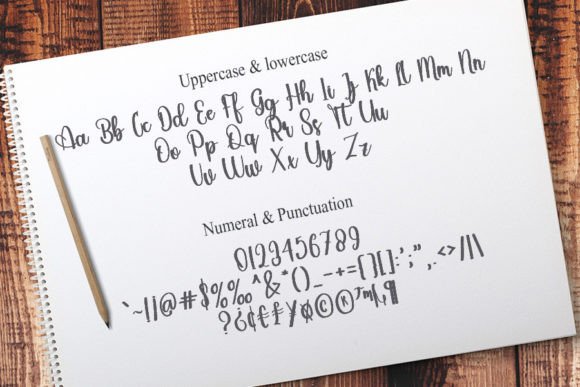 Uppercase & lowercase
Aa Bb Cc Dd Ee Ff Gg Hh Ii Jj Kk Ll Mm Nn
Oo Pp Qq Rr Ss Tt Uu
Vv Ww Xx Yy Zz
Numeral & Punctuation
0123456789
`~!|@#$%‰^&*()_-+={}[]:';",.<>/|\
?¿¢€£¥ø©®™